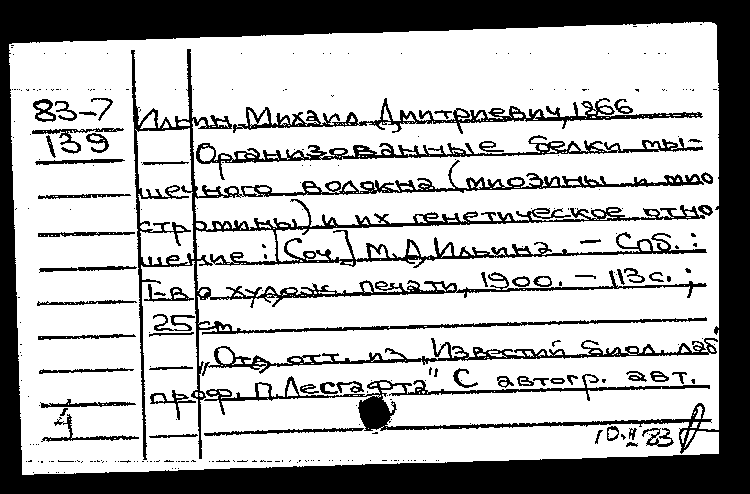 83-7
139
Ильин, Михаил Дмитриевич, 1866
Организованные белки мы-
шечного волокна (миозины и мио
стромины) и их генетическое отно-
шение : [Соч.] М.Д. Ильина. – Спб. :
Т-во худож. печати, 1900. – 113 с. ;
25 см.
"Отд. отт. из „Известий биол. лаб
проф. П. Лесгафта". С автогр. авт.
4
10.II 83